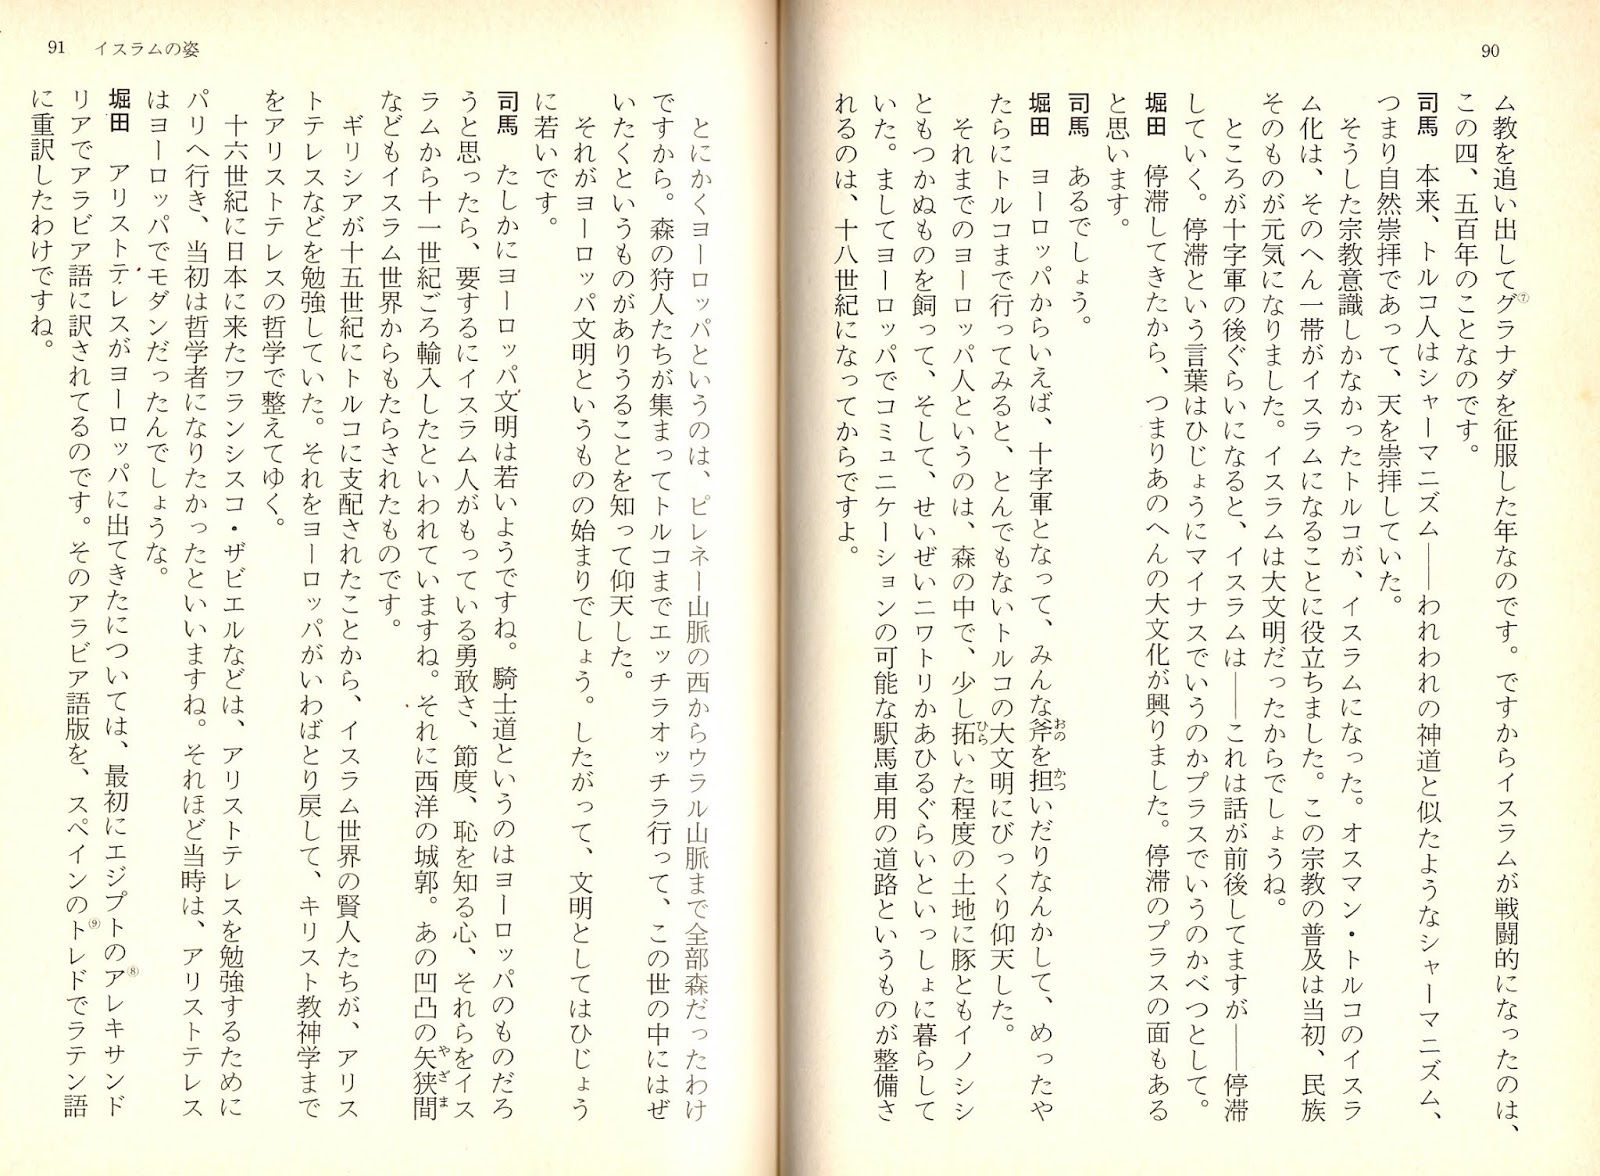 90
ム教を追い出してグラナダを征服した年なのです。ですからイスラムが戦闘的になったのは、
⑦
この四、五百年のことなのです。
司馬　本来、トルコ人はシャーマニズム――われわれの神道と似たようなシャーマニズム、
つまり自然崇拝であって、天を崇拝していた。
そうした宗教意識しかなかったトルコが、イスラムになった。オスマン・トルコのイスラ
ム化は、そのへん一帯がイスラムになることに役立ちました。この宗教の普及は当初、民族
そのものが元気になりました。イスラムは大文明だったからでしょうね。
ところが十字軍の後ぐらいになると、イスラムは――これは話が前後してますが――停滞
していく。停滞という言葉はひじょうにマイナスでいうのかプラスでいうのかべつとして。
堀田　停滞してきたから、つまりあのへんの大文化が興りました。停滞のプラスの面もある
と思います。
司馬　あるでしょう。
堀田　ヨーロッパからいえば、十字軍となって、みんな斧を担いだりなんかして、めったや
おの
かつ
たらにトルコまで行ってみると、とんでもないトルコの大文明にびっくり仰天した。
それまでのヨーロッパ人というのは、森の中で、少し拓いた程度の土地に豚ともイノシシ
ひら
ともつかぬものを飼って、そして、せいぜいニワトリかあひるぐらいといっしょに暮らして
いた。ましてヨーロッパでコミュニケーションの可能な駅馬車用の道路というものが整備さ
れるのは、十八世紀になってからですよ。
91　イスラムの姿
とにかくヨーロッパというのは、ピレネー山脈の西からウラル山脈まで全部森だったわけ
ですから。森の狩人たちが集まってトルコまでエッチラオッチラ行って、この世の中にはぜ
いたくというものがありうることを知って仰天した。
それがヨーロッパ文明というものの始まりでしょう。したがって、文明としてはひじょう
に若いです。
司馬　たしかにヨーロッパ文明は若いようですね。騎士道というのはヨーロッパのものだろ
うと思ったら、要するにイスラム人がもっている勇敢さ、節度、恥を知る心、それらをイス
ラムから十一世紀ごろ輸入したといわれていますね。それに西洋の城郭。あの凹凸の矢狭間
やざま
などもイスラム世界からもたらされたものです。
ギリシアが十五世紀にトルコに支配されたことから、イスラム世界の賢人たちが、アリス
トテレスなどを勉強していた。それをヨーロッパがいわばとり戻して、キリスト教神学まで
をアリストテレスの哲学で整えてゆく。
十六世紀に日本に来たフランシスコ・ザビエルなどは、アリストテレスを勉強するために
パリへ行き、当初は哲学者になりたかったといいますね。それほど当時は、アリストテレス
はヨーロッパでモダンだったんでしょうな。
堀田　アリストテレスがヨーロッパに出てきたについては、最初にエジプトのアレキサンド
⑧
リアでアラビア語に訳されてるのです。そのアラビア語版を、スペインのトレドでラテン語
⑨
に重訳したわけですね。